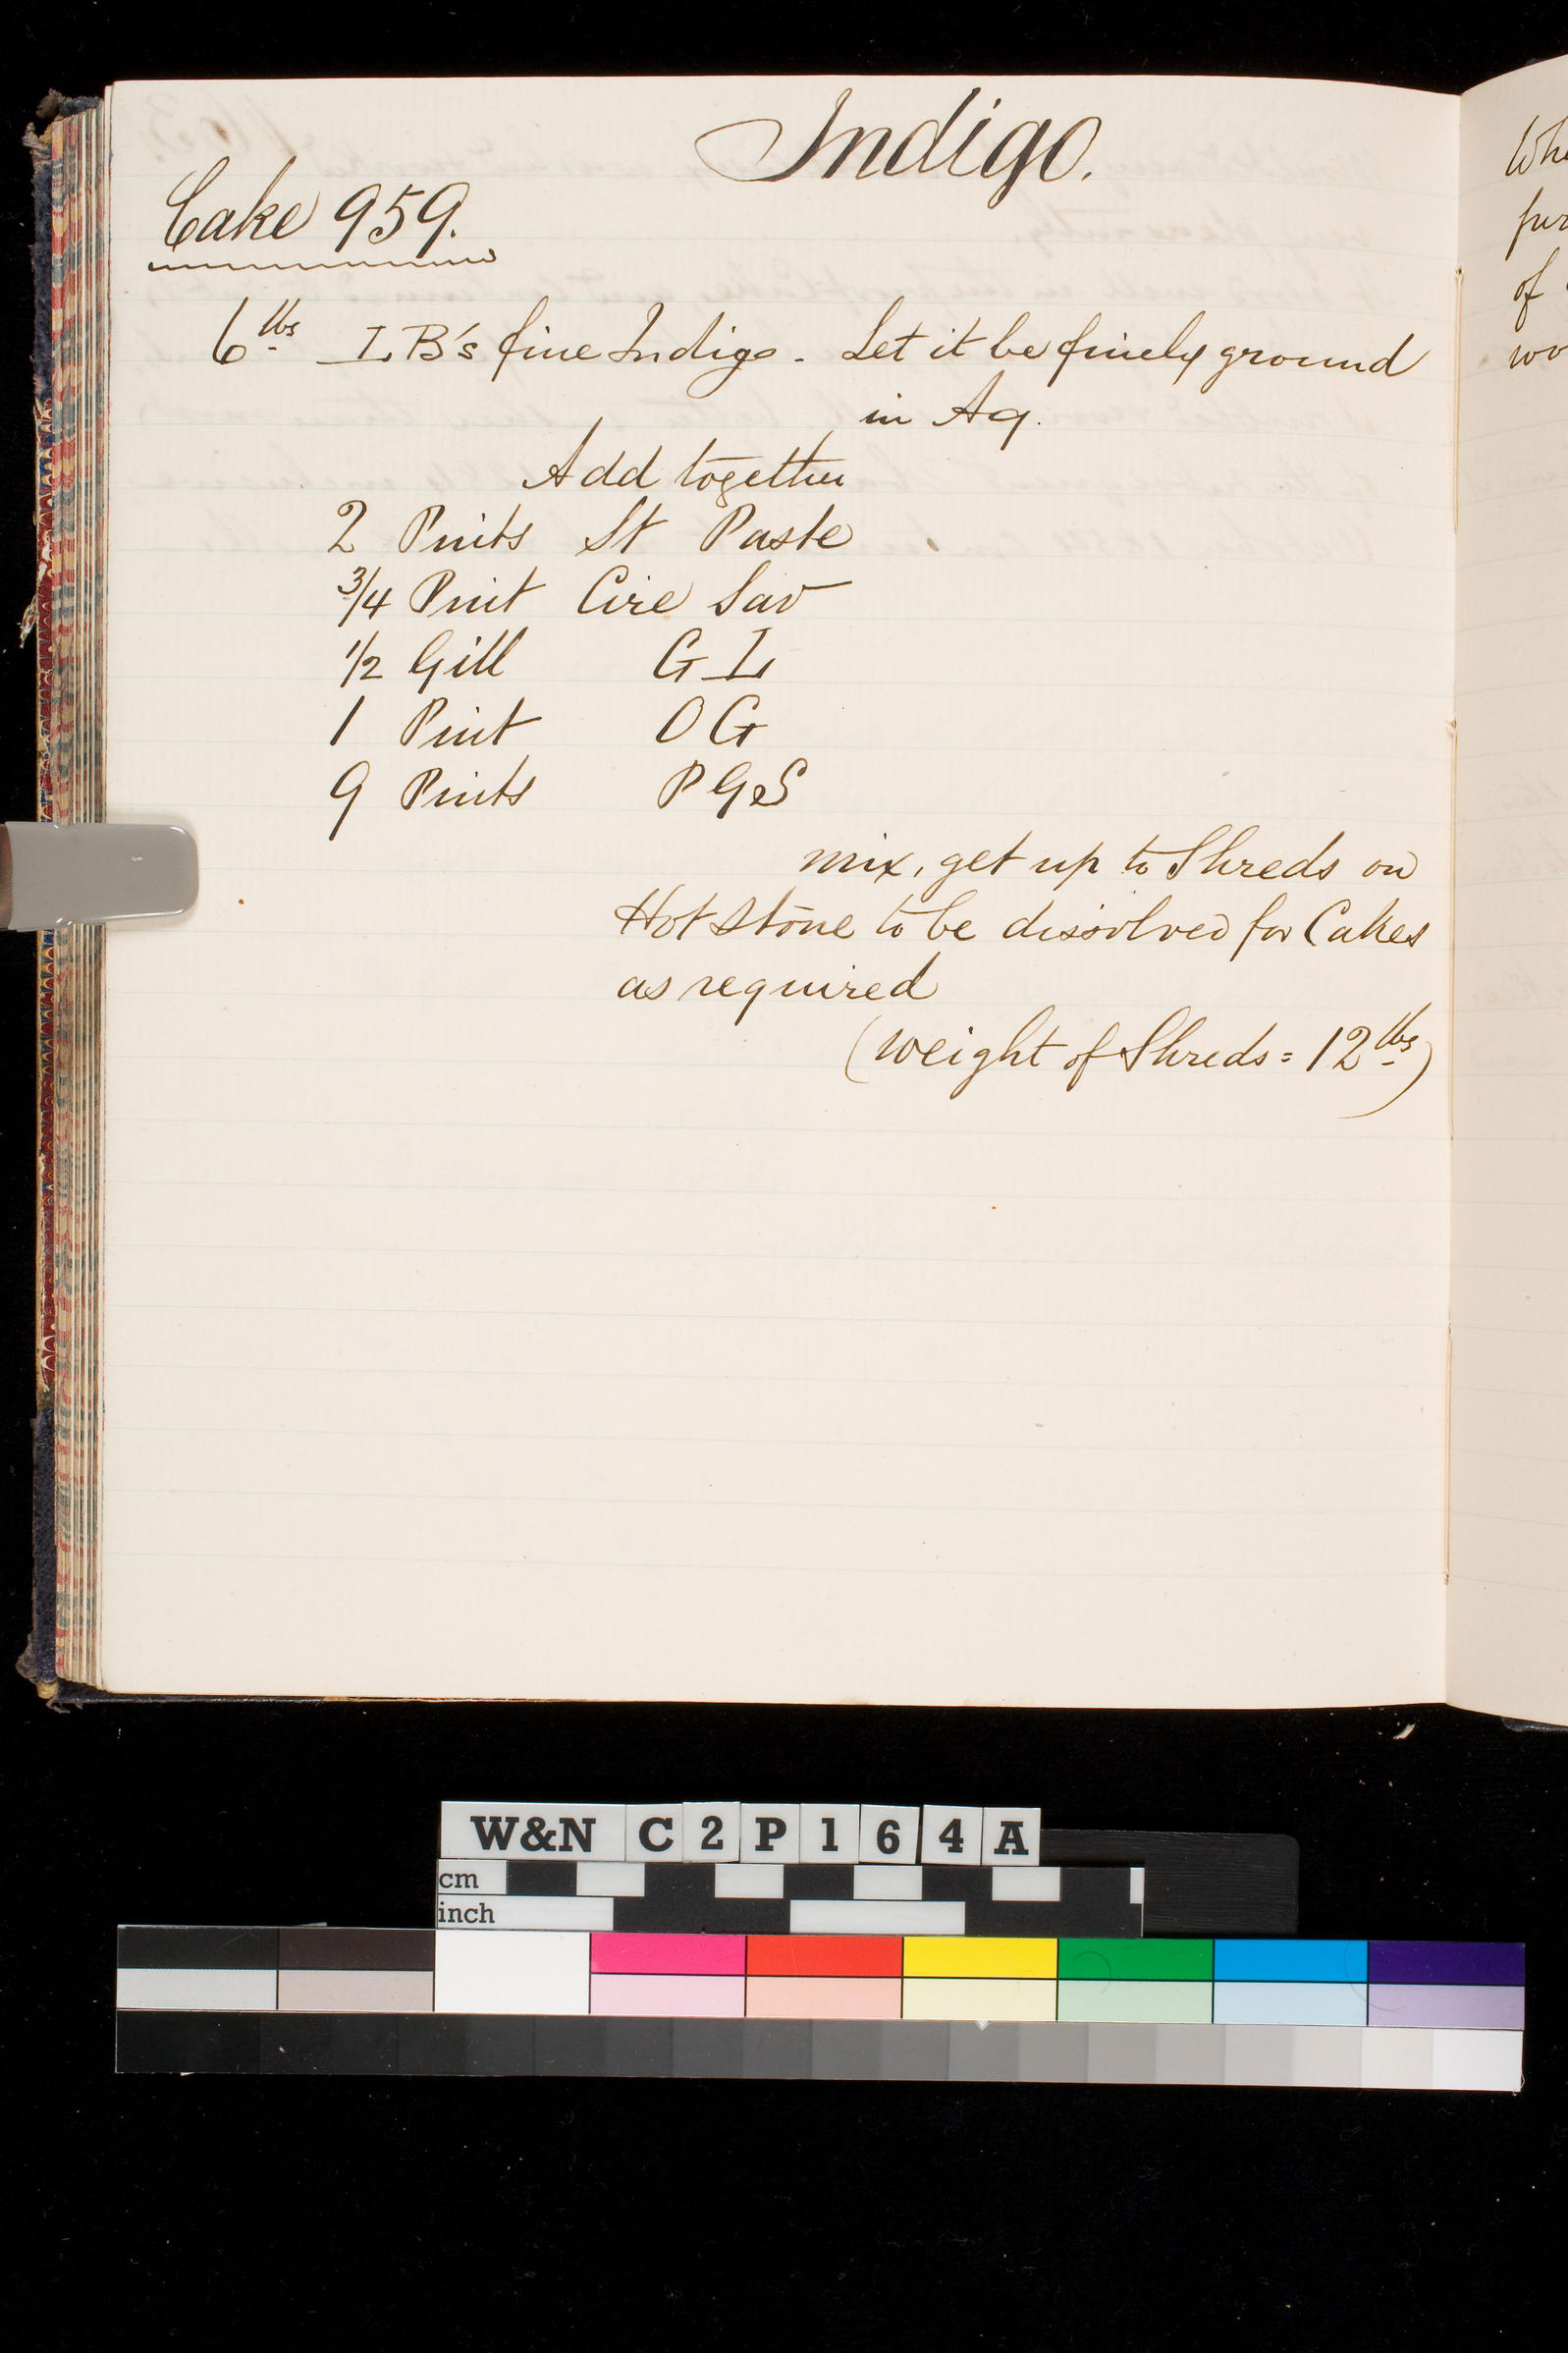 Indigo.
Cake 959.
6 lbs LB's fine Indigo - Let it be finely ground
in Aq.
Add together
2 Pints St Paste
3/4 Pint Cire Sav
1/2 Gill G L
1 Pint O G
9 Pints P G S
mix, get up to Shreds on
Hot Stone to be dissolved for Cakes
as required
(weight of Shreds = 12 lbs)
of
W&N C2P164A
cm
inch